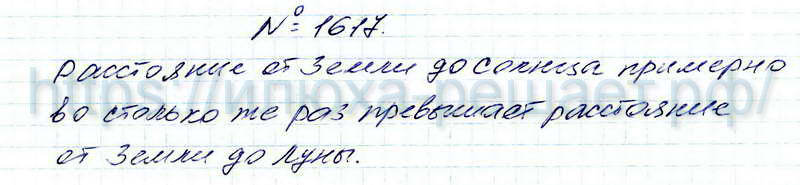 № 1617.
Расстояние от Земли до Солнца примерно
во столько же раз превышает расстояние
от Земли до Луны.
https://илюха-решает.рф/